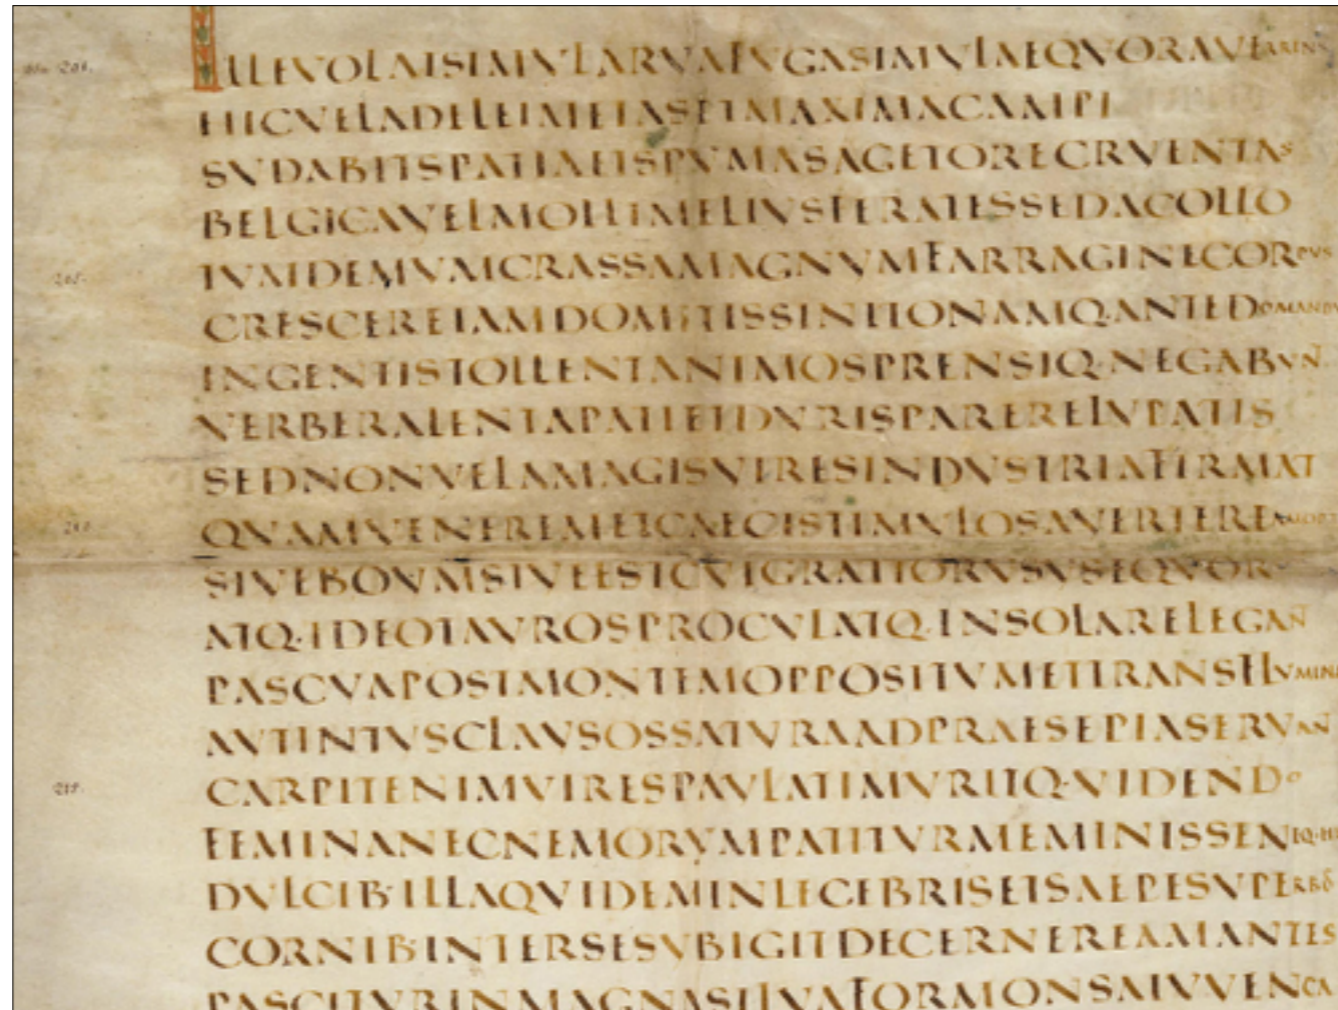 201.
ILLEVOLATSIMVLARVAFVGASIMVLAEQVORAVERRENS
HICVELADELEIMETASETMAXIMACAMPI
SVDABITSPATIAETSPVMASAGETORECRVENTAS
BELGICAVELMOLLIMELIVSFERATESSEDACOLLO
205.
TVMDEMVMCRASSAMAGNVMFARRAGINECORPVS
CRESCEREIAMDOMITISSINITONAMQ·ANTEDOMAND
INGENTISTOLLENTANIMOSPRENSIQ·NEGABVN̄
VERBERALENTAPATIETDVRISPARERELVPATIS
SEDNONVLLAMAGISVIRESINDVSTRIAFIRMAT
210.
QVAMVENEREMETCAECISTIMVLOSAVERTEREAMORI
SIVEBOVMSIVEESTCVIGRATIORVSVSEQVOR
ATQ·IDEOTAVROSPROCVLATQ·INSOLARELEGAN̄
PASCVAPOSTMONTEMOPPOSITVMETTRANSFLVMINA
AVTINTVSCLAVSOSSATVRAADPRAESEPIASERVAN̄
215.
CARPITENIMVIRESPAVLATIMVRITQ·VIDENDO
FEMINANECNEMORVMPATITVRMEMINISSENEQ·HE
DVLCIB·ILLAQVIDEMINLECEBRISETSAEPESVPERBO
CORNIB·INTERSESVBIGITDECERNEREAMANTES
PASCITVRINMAGNASILVAFORMONSAIVVENCA